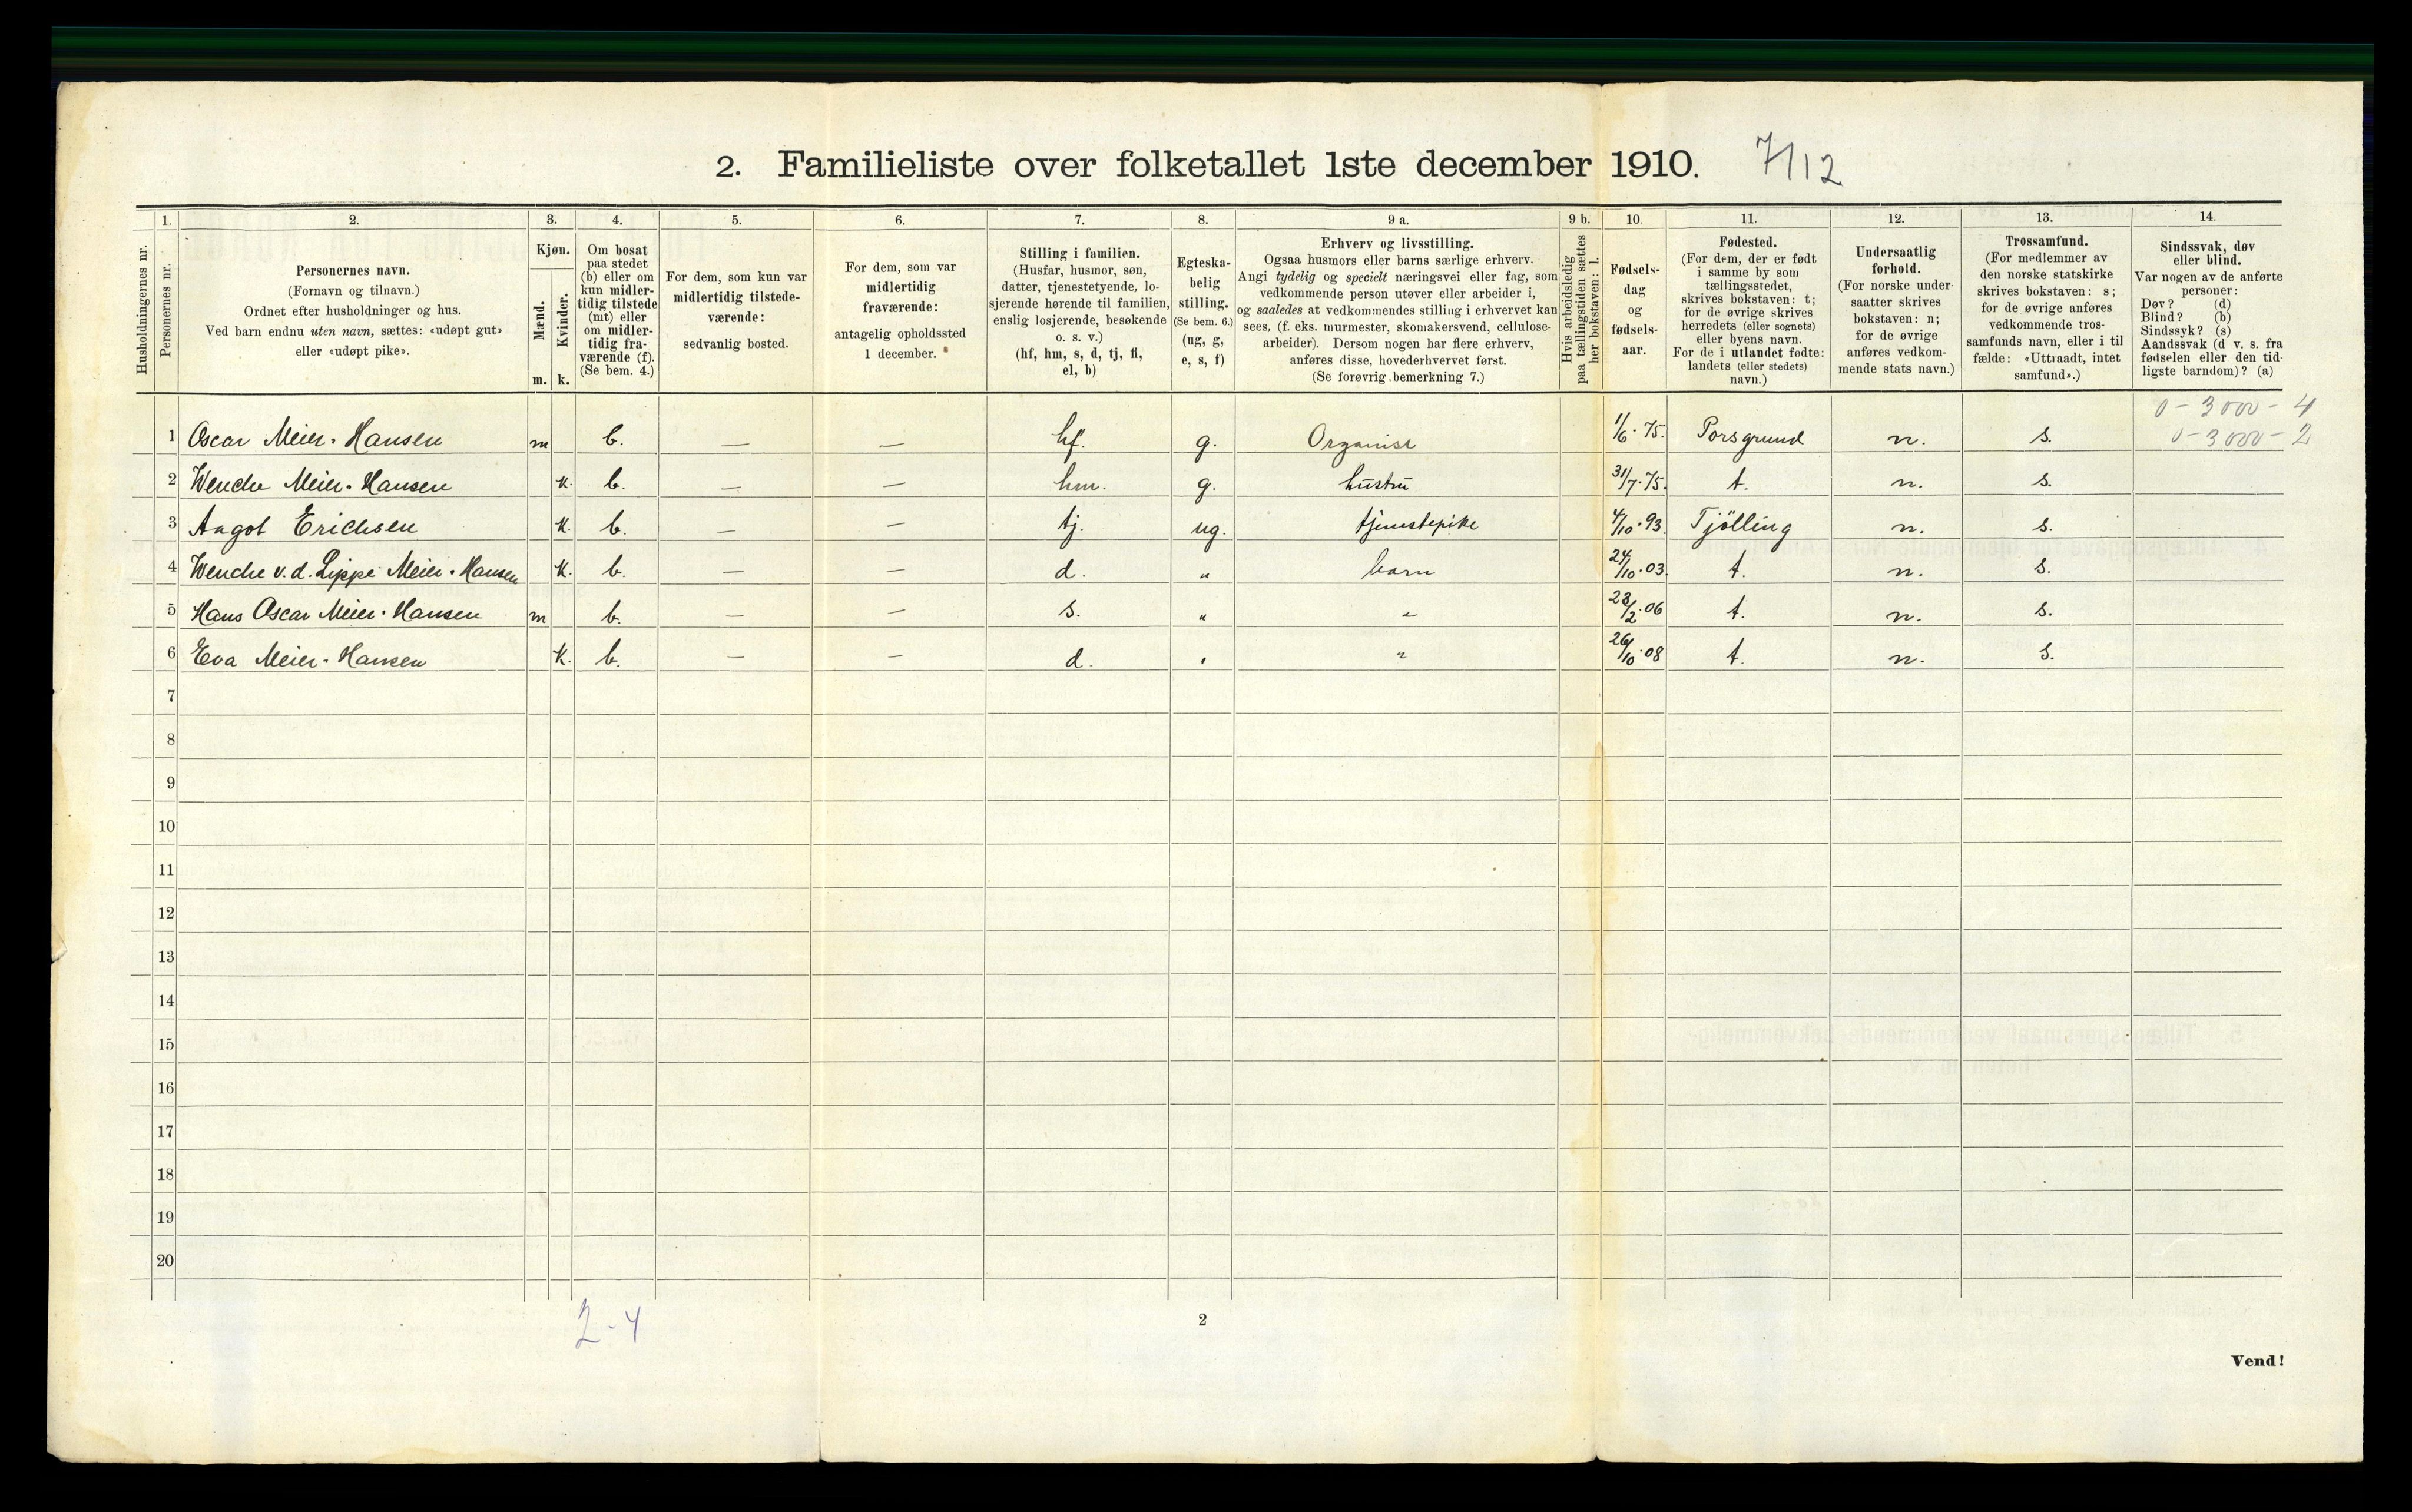 2. Familieliste over folketallet 1ste december 1910. 7/12
Husholdningernes nr.
1. Personernes nr.
2. Personernes navn.
(Fornavn og tilnavn.)
Ordnet efter husholdninger og hus.
Ved barn endnu uten navn, sættes: «udøpt gut»
eller «udøpt pike».
3. Kjøn.
Mænd. m.
Kvinder. k.
4. Om bosat
paa stedet
(b) eller om
kun midler-
tidig tilstede
(mt) eller
om midler-
tidig fra-
værende (f).
(Se bem. 4.)
5. For dem, som kun var
midlertidig tilstede-
værende:
sedvanlig bosted.
6. For dem, som var
midlertidig
fraværende:
antagelig opholdssted
1 december.
7. Stilling i familien.
(Husfar, husmor, søn,
datter, tjenestetyende, lo-
sjerende hørende til familien,
enslig losjerende, besøkende
o. s. v.)
(hf, hm, s, d, tj, fl,
el, b)
8. Egteska-
belig
stilling.
(Se bem. 6.)
(ug, g,
e, s, f)
9 a. Erhverv og livsstilling.
Ogsaa husmors eller barns særlige erhverv.
Angi tydelig og specielt næringsvei eller fag, som
vedkommende person utøver eller arbeider i,
og saaledes at vedkommendes stilling i erhvervet kan
sees, (f. eks. murmester, skomakersvend, cellulose-
arbeider). Dersom nogen har flere erhverv,
anføres disse, hovederhvervet først.
(Se forøvrig bemerkning 7.)
9 b. Hvis arbeidsledig
paa tællingstiden sættes
her bokstaven: l.
10. Fødsels-
dag
og
fødsels-
aar.
11. Fødested.
(For dem, der er født
i samme by som
tællingsstedet,
skrives bokstaven: t;
for de øvrige skrives
herredets (eller sognets)
eller byens navn.
For de i utlandet fødte:
landets (eller stedets)
navn.)
12. Undersaatlig
forhold.
(For norske under-
saatter skrives
bokstaven: n;
for de øvrige
anføres vedkom-
mende stats navn.)
13. Trossamfund.
(For medlemmer av
den norske statskirke
skrives bokstaven: s;
for de øvrige anføres
vedkommende tros-
samfunds navn, eller i til
fælde: «Uttraadt, intet
samfund».)
14. Sindssvak, døv
eller blind.
Var nogen av de anførte
personer:
Døv? (d)
Blind? (b)
Sindssyk? (s)
Aandssvak (d v. s. fra
fødselen eller den tid-
ligste barndom)? (a)
0 - 3000 - 4
1 Oscar Meier-Hansen m b. — — hf. g. Organist 1/6. 75. Porsgrund n. s. 0 - 3000 - 2
2 Wenche Meier-Hansen k. b. — — hm. g. hustru 31/7. 75. t. n. s.
3 Aagot Erichsen k. b. — — tj. ug. tjenestepike 4/10. 93. Tjölling n. s.
4 Wenche v.d. Lippe Meier-Hansen k. b. — — d. " barn 24/10. 03. t. n. s.
5 Hans Oscar Meier-Hansen m b. — — s. " " 23/2. 06 t. n. s.
6 Eva Meier-Hansen k. b. — — d. " " 26/10. 08 t. n. s.
7
8
9
10
11
12
13
14
15
16
17
18
19
20
2 - 4
2
Vend!